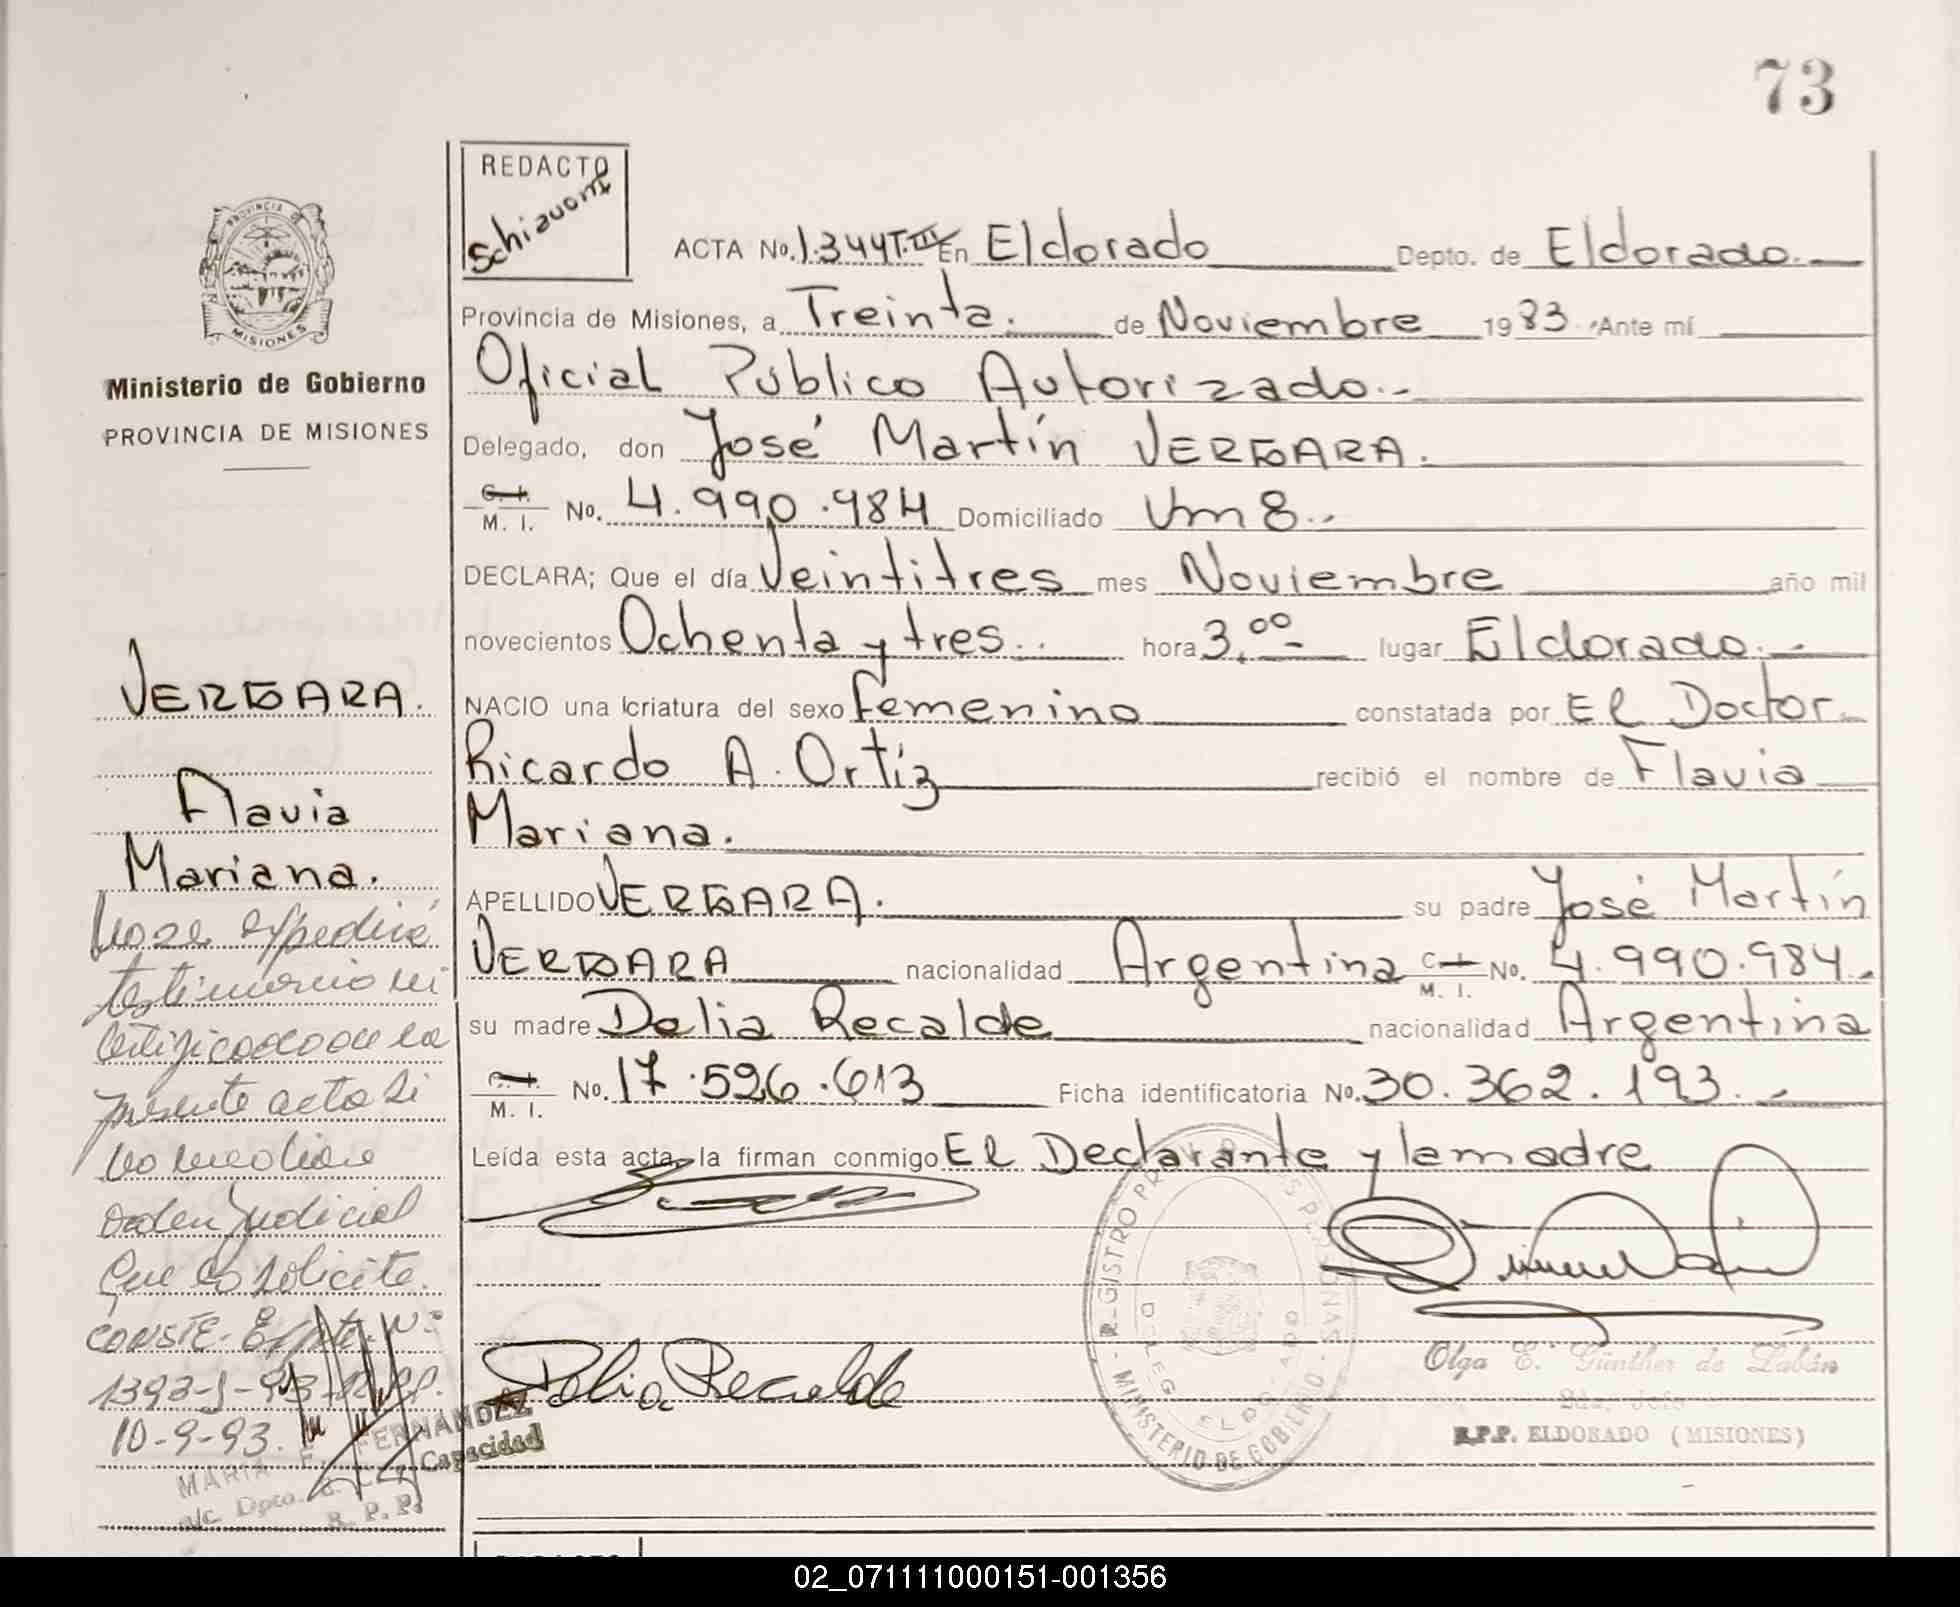 73
REDACTO
Schiavoni
PROVINCIA DE
MISIONES
Ministerio de Gobierno
PROVINCIA DE MISIONES
ACTA No. 1.344 T.III En Eldorado Depto. de Eldorado.
Provincia de Misiones, a Treinta. de Noviembre 1983. Ante mí
Oficial Público Autorizado.-
Delegado, don José Martín VERGARA.
C. I. M. I. No. 4.990.984 Domiciliado Km 8.-
DECLARA; Que el día Veintitres mes Noviembre año mil
novecientos Ochenta y tres.. hora 3,00 lugar Eldorado.-
NACIO una criatura del sexo femenino constatada por El Doctor
Ricardo A. Ortíz recibió el nombre de Flavia
Mariana.
APELLIDO VERGARA. su padre José Martín
VERGARA nacionalidad Argentina C. I. M. I. No. 4.990.984.
su madre Delia Recalde nacionalidad Argentina
C. I. M. I. No. 17.526.613 Ficha identificatoria No. 30.362.193.-
Leída esta acta, la firman conmigo El Declarante y la madre
Delia Recalde
REGISTRO PROV. DE LAS PERSONAS
MINISTERIO DE GOBIERNO
DELEG. ELDORADO
Olga E. Günther de Labán
R.P.P. ELDORADO (MISIONES)
VERGARA.
Flavia
Mariana.
No se expedirá
testimonio ni
certificado de la
presente acta si
no mediare
orden judicial
que lo solicite.
CONSTE. Expte. Nº
1393-J-93-R.P.P.
10-9-93.
MARIA E. FERNANDEZ
a/c. Dpto. Capacidad
R. P. P.
02_071111000151-001356